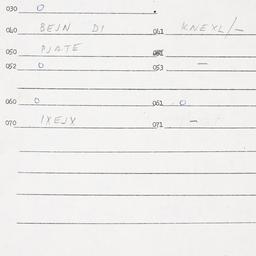 030 0
040 BEJN DI 041 KNEXL/-
050 PJATE
052 0 053 -
060 0 061 0
070 IXEJX 071 -